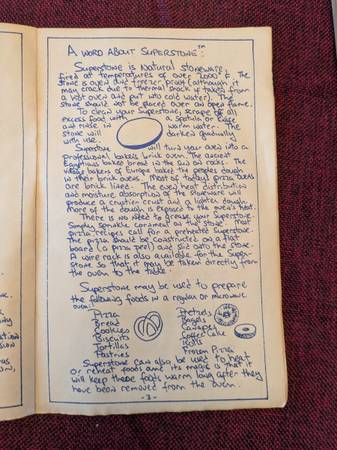 A WORD ABOUT SUPERSTONE™:
Superstone is Natural stoneware,
fired at temperatures of over 2000° F. The
stone is oven and freezer proof (although it
may crack due to thermal shock if taken from
a hot oven and put into cold water). The
stone should not be placed over an open flame.
To clean your Superstone, scrape off all
excess food with a spatula or knife
and rinse in warm water. The
stone will darken gradually
with use.
Superstone will turn your oven into a
professional bakers brick oven. The ancient
Egyptians baked bread in the sun on rocks. The
village bakers of Europe baked the peoples dough
in their brick ovens. Most of todays pizza ovens
are brick lined. The even heat distribution
and moisture absorption of the stoneware will
produce a crustier crust and a lighter dough.
More of the dough is exposed to the oven's heat.
There is no need to grease your Superstone.
Simply sprinkle cornmeal on the stone. Most
pizza recipes call for a preheated Superstone.
The pizza should be constructed on a flat
board (a pizza peel) and slid onto the stone.
A wire rack is also available for the Super-
stone so that it may be taken directly from
the oven to the table.
Superstone may be used to prepare
the following foods in a regular or microwave
oven:
Pizza
Bread
Cookies
Biscuits
Tortillas
Pastries
Pretzels
Bagels
Canapes
Coffee Cake
Rolls
Frozen Pizza
Superstone can also be used to heat
or reheat foods and its magic is that it
will keep these foods warm long after they
have been removed from the oven.
-3-